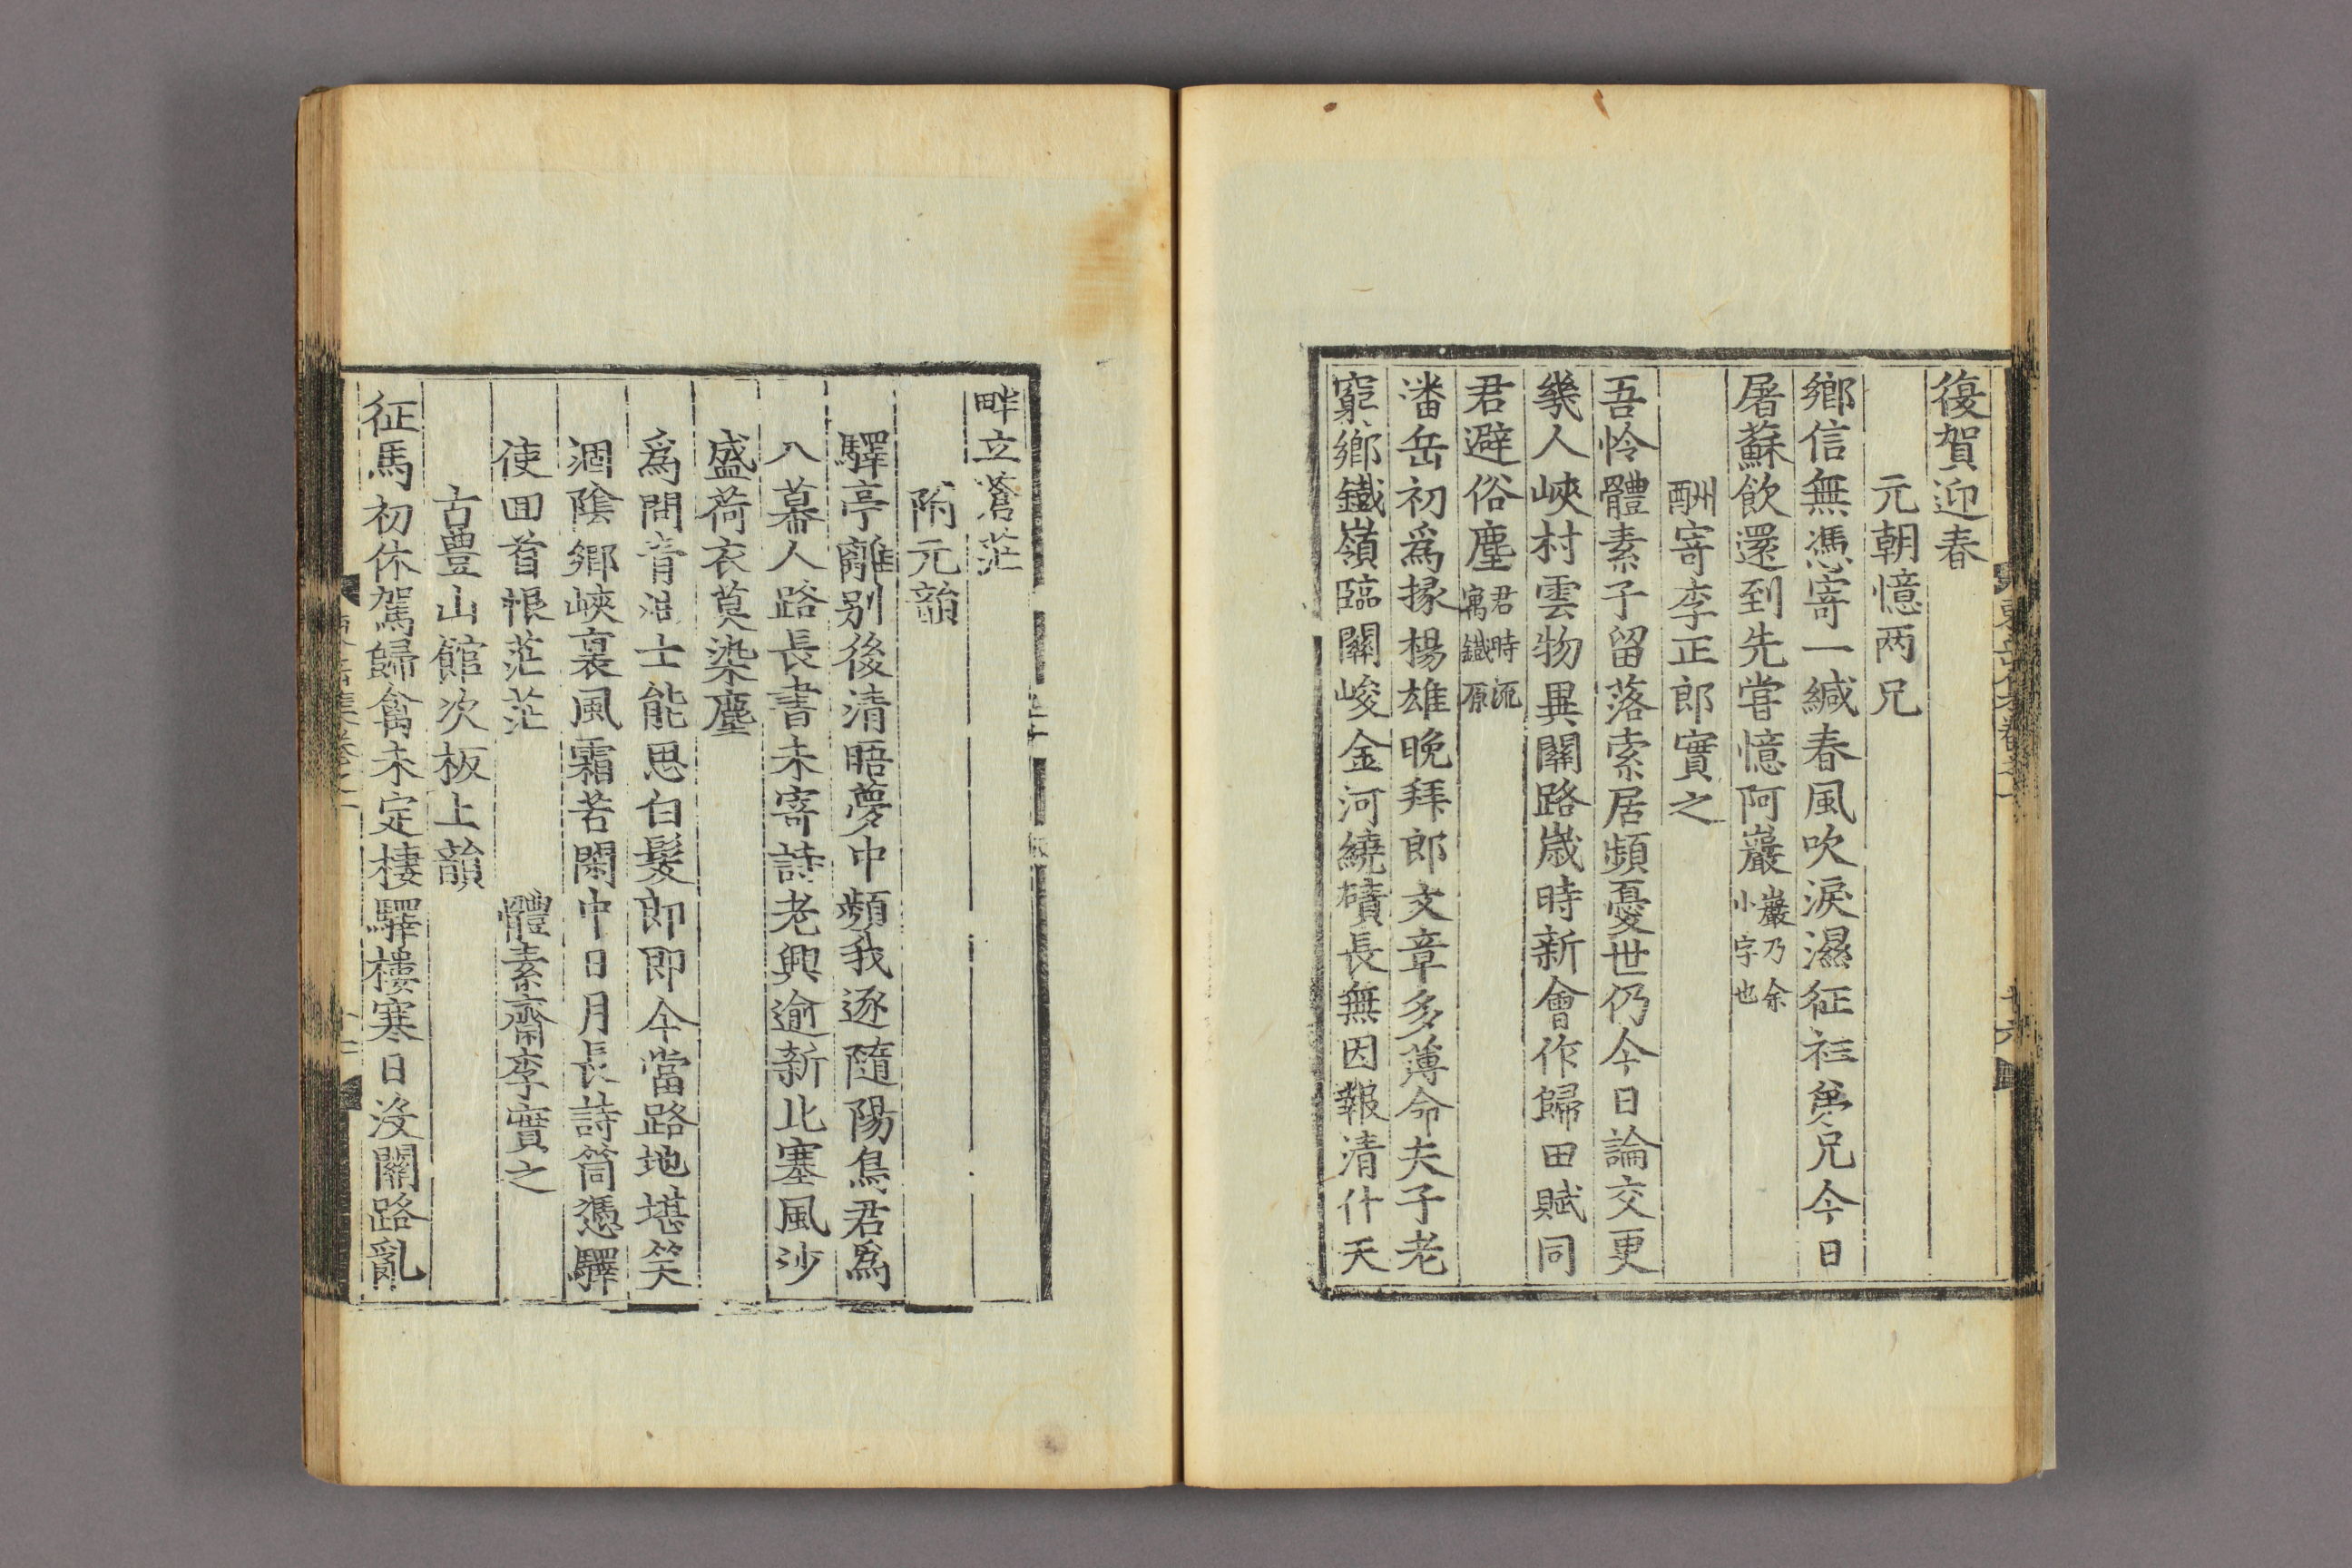 復賀迎春
元朝憶两兄
鄉信無憑寄一緘春風吹淚濕征衫兄今日
屠蘇飲還到先嘗憶阿巖巖乃余小字也
酬寄李正郎實之
吾怜體素子留落索居頻憂世仍今日論交更
幾人峽村雲物異關路歲時新會作歸田賦同
君避俗塵君時流寓鐵原
潘岳初爲掾楊雄晚拜郎文章多薄命夫子老
窮鄉鐵嶺臨關峻金河繞磧長無因報清什天
畔立蒼茫
附元韻
驛亭離別後清晤夢中頻我逐隨陽鳥君爲
入幕人路長書未寄詩老興逾新北塞風沙
盛荷衣莫染塵
爲問青油士能思白髮郎即今當路地堪笑
涸陰鄉峽裏風霜苦閑中日月長詩筒憑驛
使回首悵茫茫
體素齋李實之
古豊山館次板上韻
征馬初休駕歸禽未定棲驛樓寒日沒關路亂